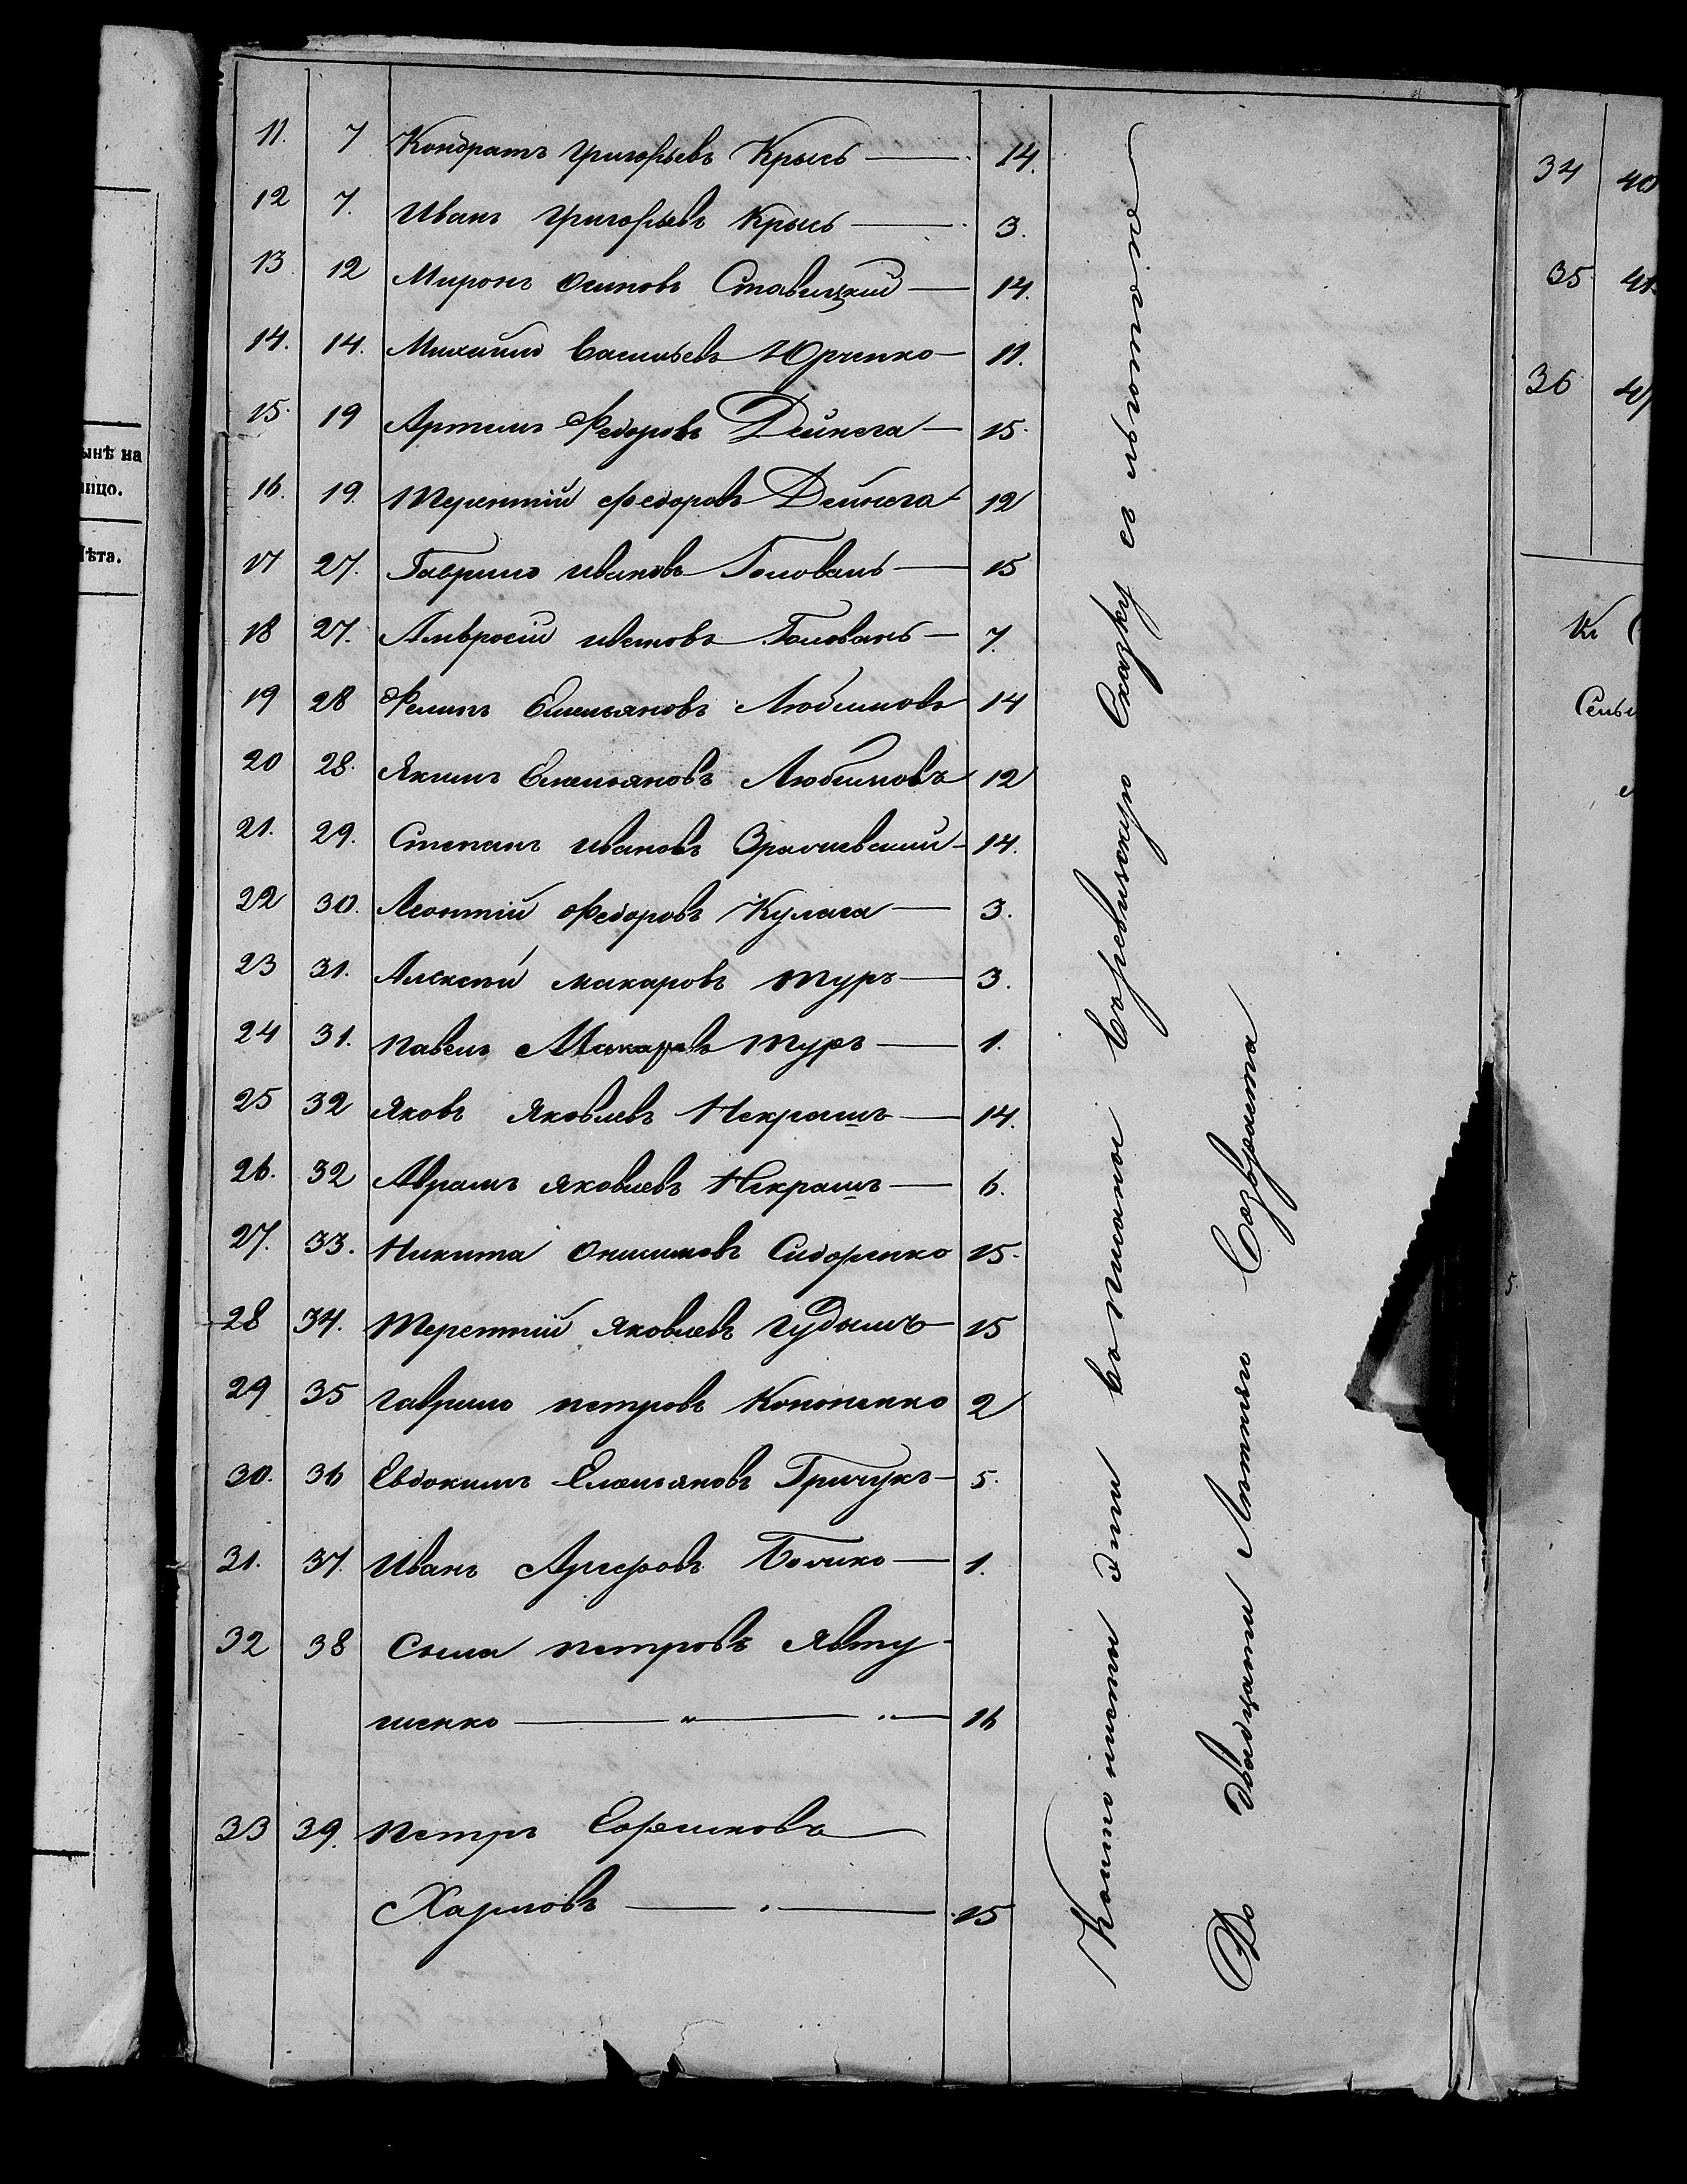 11. 7 Кондратъ Григорьевъ Крысь — 14.
12 7. Иванъ Григорьевъ Крысь — 3.
13 12 Миронъ Осиповъ Ставицкий — 14.
14. 14. Михайло Васильевъ Юрченко — 11.
15. 19 Артемъ Федоровъ Дейнега — 15.
16. 19. Терентий Федоровъ Дейнега 12
17 27. Гаврило Ивановъ Головань — 15
18 27. Амвросий Ивановъ Головань — 7.
19 28 Филипъ Емельяновъ Любимовъ 14
20 28. Якимъ Емельяновъ Любимовъ 12
21. 29. Степанъ Ивановъ 14.
22 30. Леонтий Федоровъ Кулага — 3.
23 31. Алексей Макаровъ Туръ — 3.
24 31. Павелъ Макаровъ Туръ — 1.
25 32 Яковъ Яковлевъ Некрашъ — 14.
26. 32 Аврамъ Яковлевъ Некрашъ — 6.
27. 33. Никита Онисимовъ Сидоренко 15.
28 34. Терентий Яковлевъ Гудымъ 15
29 35 Гаврило Петровъ Кононенко 2
30. 36 Евдокимъ Емельяновъ Гричукъ — 5.
31. 37. Иванъ Бочко — 1.
32 38 Сыла Петровъ Явту-
шенко — " — " — 16
33 39. Петръ Ефимовъ
Харловъ — 15
эти вписаны въ Ревизскую Сказку и
До двадцати Лѣтняго Возраста
34 40
35 41.
36
Къ
ынѣ на
лицо.
Лѣта.